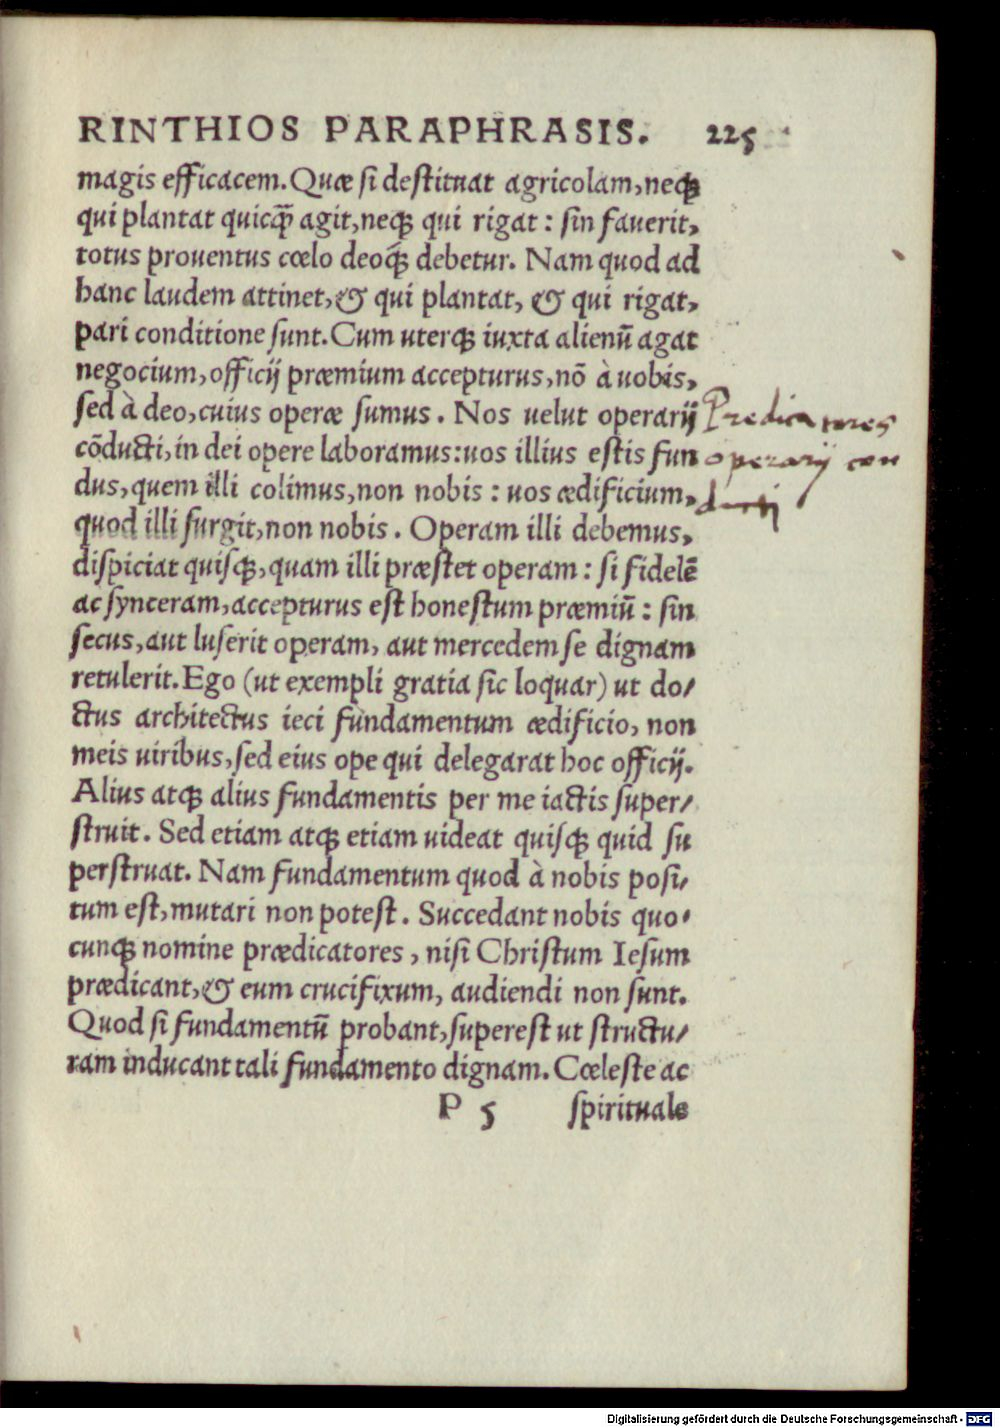 RINTHIOS PARAPHRASIS. 225
magis efficacem. Quæ si destituat agricolam, neqꝫ
qui plantat quicq̃ agit, neqꝫ qui rigat: sin fauerit,
totus prouentus cœlo deoqꝫ́ debetur. Nam quod ad
hanc laudem attinet, & qui plantat, & qui rigat,
pari conditione sunt. Cum uterqꝫ iuxta alienū agat
negocium, officij præmium accepturus, nõ à uobis,
sed à deo, cuius operæ sumus. Nos uelut operarij
cõducti, in dei opere laboramus: uos illius estis fun
dus, quem illi colimus, non nobis: uos ædificium,
quod illi surgit, non nobis. Operam illi debemus,
dispiciat quisqꝫ, quam illi præstet operam: si fidelē
ac synceram, accepturus est honestum præmiū: sin
secus, aut luserit operam, aut mercedem se dignam
retulerit. Ego (ut exempli gratia sic loquar) ut do/
ctus architectus ieci fundamentum ædificio, non
meis uiribus, sed eius ope qui delegarat hoc officij.
Alius atqꝫ alius fundamentis per me iactis super/
struit. Sed etiam atqꝫ etiam uideat quisqꝫ quid su
perstruat. Nam fundamentum quod à nobis posi/
tum est, mutari non potest. Succedant nobis quo/
cunqꝫ nomine prædicatores, nisi Christum Iesum
prædicant, & eum crucifixum, audiendi non sunt.
Quod si fundamentū probant, superest ut structu/
ram inducant tali fundamento dignam. Cœleste ac
P 5 spirituale
Predicatores
operarij con
ducti
Digitalisierung gefördert durch die Deutsche Forschungsgemeinschaft - DFG